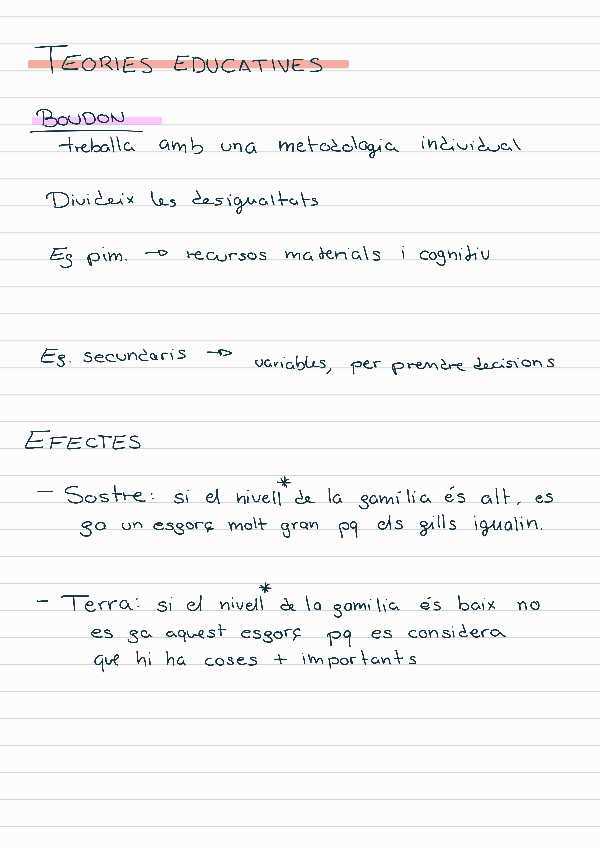 TEORIES EDUCATIVES
BOUDON
treballa amb una metodologia individual
Divideix les desigualtats
Ef prim. → recursos materials i cognitiu
Ef. secundaris → variables, per prendre decisions
EFECTES
- Sostre: si el nivell* de la família és alt, es
fa un esforç molt gran pq els fills igualin.
- Terra: si el nivell* de la família és baix no
es fa aquest esforç pq es considera
que hi ha coses + importants